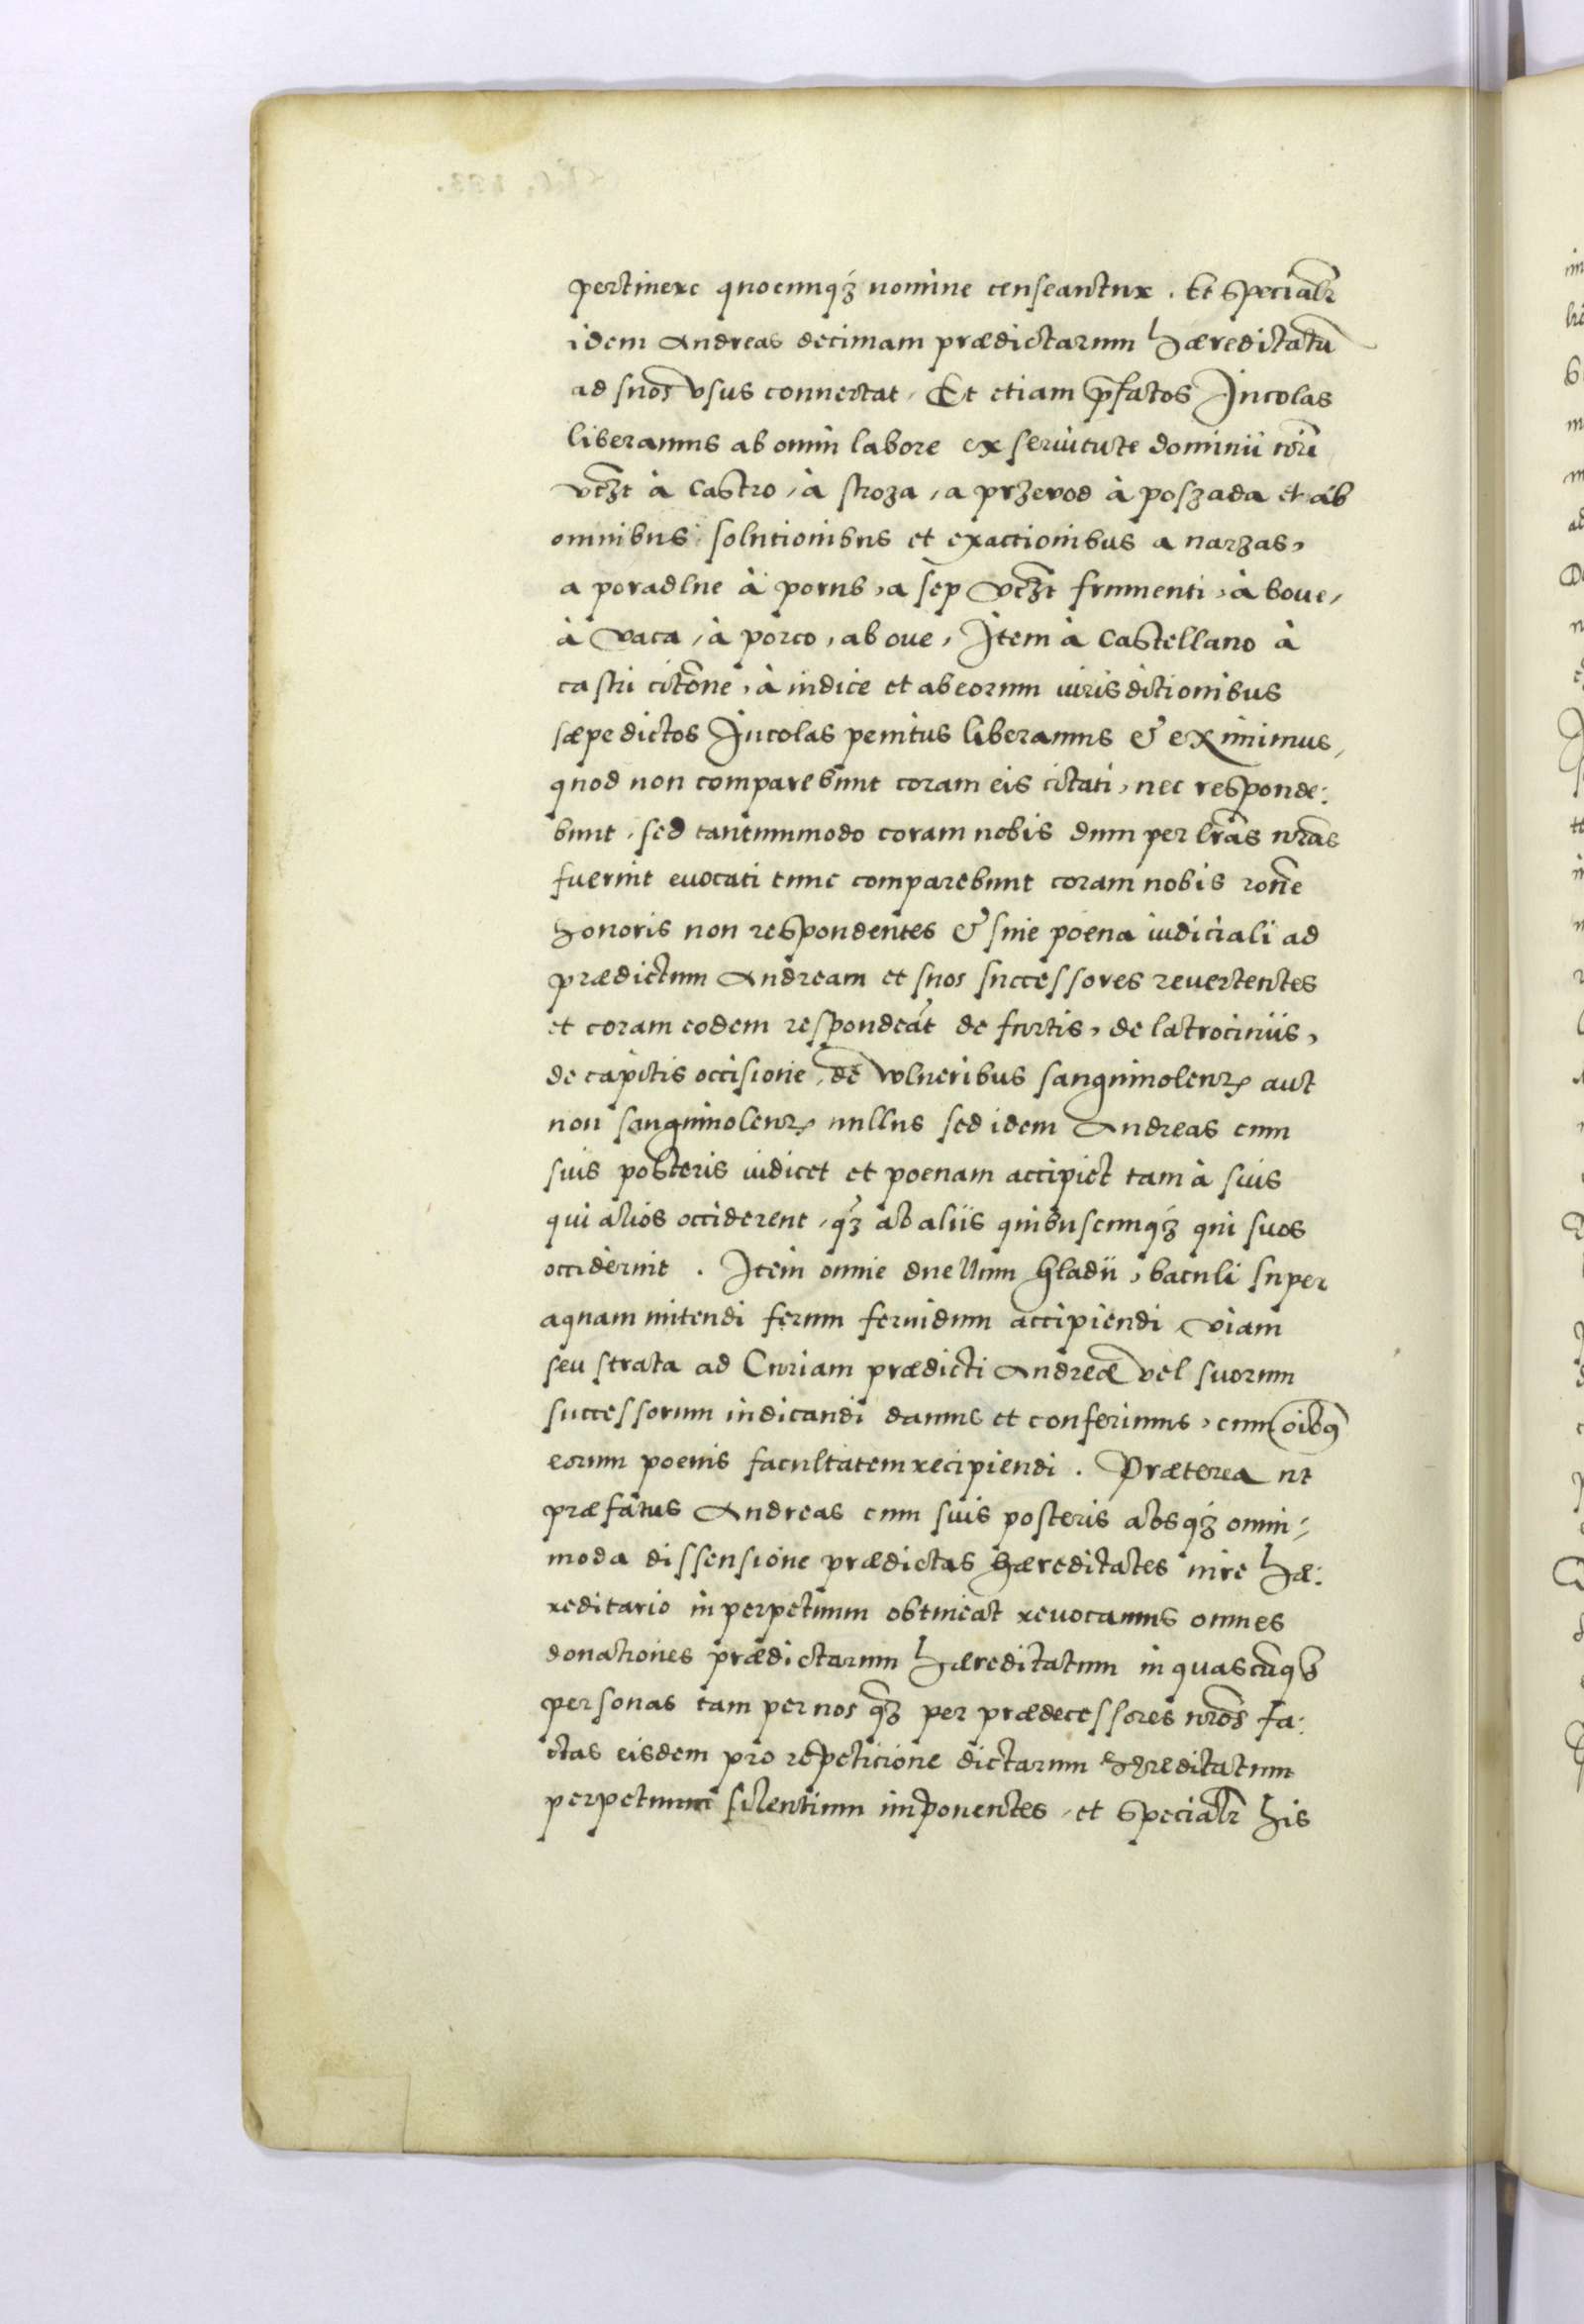 pertinere quocunq₃ nomine censeantur. Et specialr̃
idem Andreas decimam prædictarum hæreditatũ
ad suos usus conuertat, Et etiam p̃fatos Incolas
liberamus ab omni labore ex seruitute dominii nr̃i
vcz̃t à Castro, à stroza, a przevod à poszada et ab
omnibus solutionibus et exactionibus a narzas,
a poradlne à porus, a sep vcz̃t frumenti, à boue,
à vaca, à porco, ab oue, Item à Castellano à
castri citõne, à iudice et ab eorum iurisditionibus
sæpedictos Incolas penitus liberamus & eximimus,
quod non comparebunt coram eis citati, nec responde:
bunt, sed tantummodo coram nobis dum per lr̃as nr̃as
fuerint euocati tunc comparebunt coram nobis rõne
honoris non respondentes & sine poena iudiciali ad
prædictum Andream et suos successores reuertentes
et coram eodem respondeãt de furtis, de latrociniis,
de capitis occisione, de vulneribus sanguinolenꝝ aut
non sanguinolenꝝ nullus sed idem Andreas cum
suis posteris iudicet et poenam accipiet tam à suis
qui alios occiderent, q₃ ab aliis quibuscunq₃ qui suos
occiderint. Item omne duellum gladii, baculi super
aquam mitendi ferum feruidum accipiendi viam
seu strata ad Curiam prædicti Andreæ vel suorum
successorum iudicandi damus et conferimus, cum oĩbq̃
eorum poenis facultatem recipiendi. Præterea ut
præfatus Andreas cum suis posteris absq₃ omni=
moda dissensione prædictas hæreditates iure hæ:
reditario in perpetuum obtineat reuocamus omnes
donationes prædictarum hæreditatum in quascũq₃
personas tam per nos q̃₃ per prædecessores nr̃os fa:
ctas eisdem pro repeticione dictarum hęreditatum
perpetuum silentium imponentes, et specialr̃ his